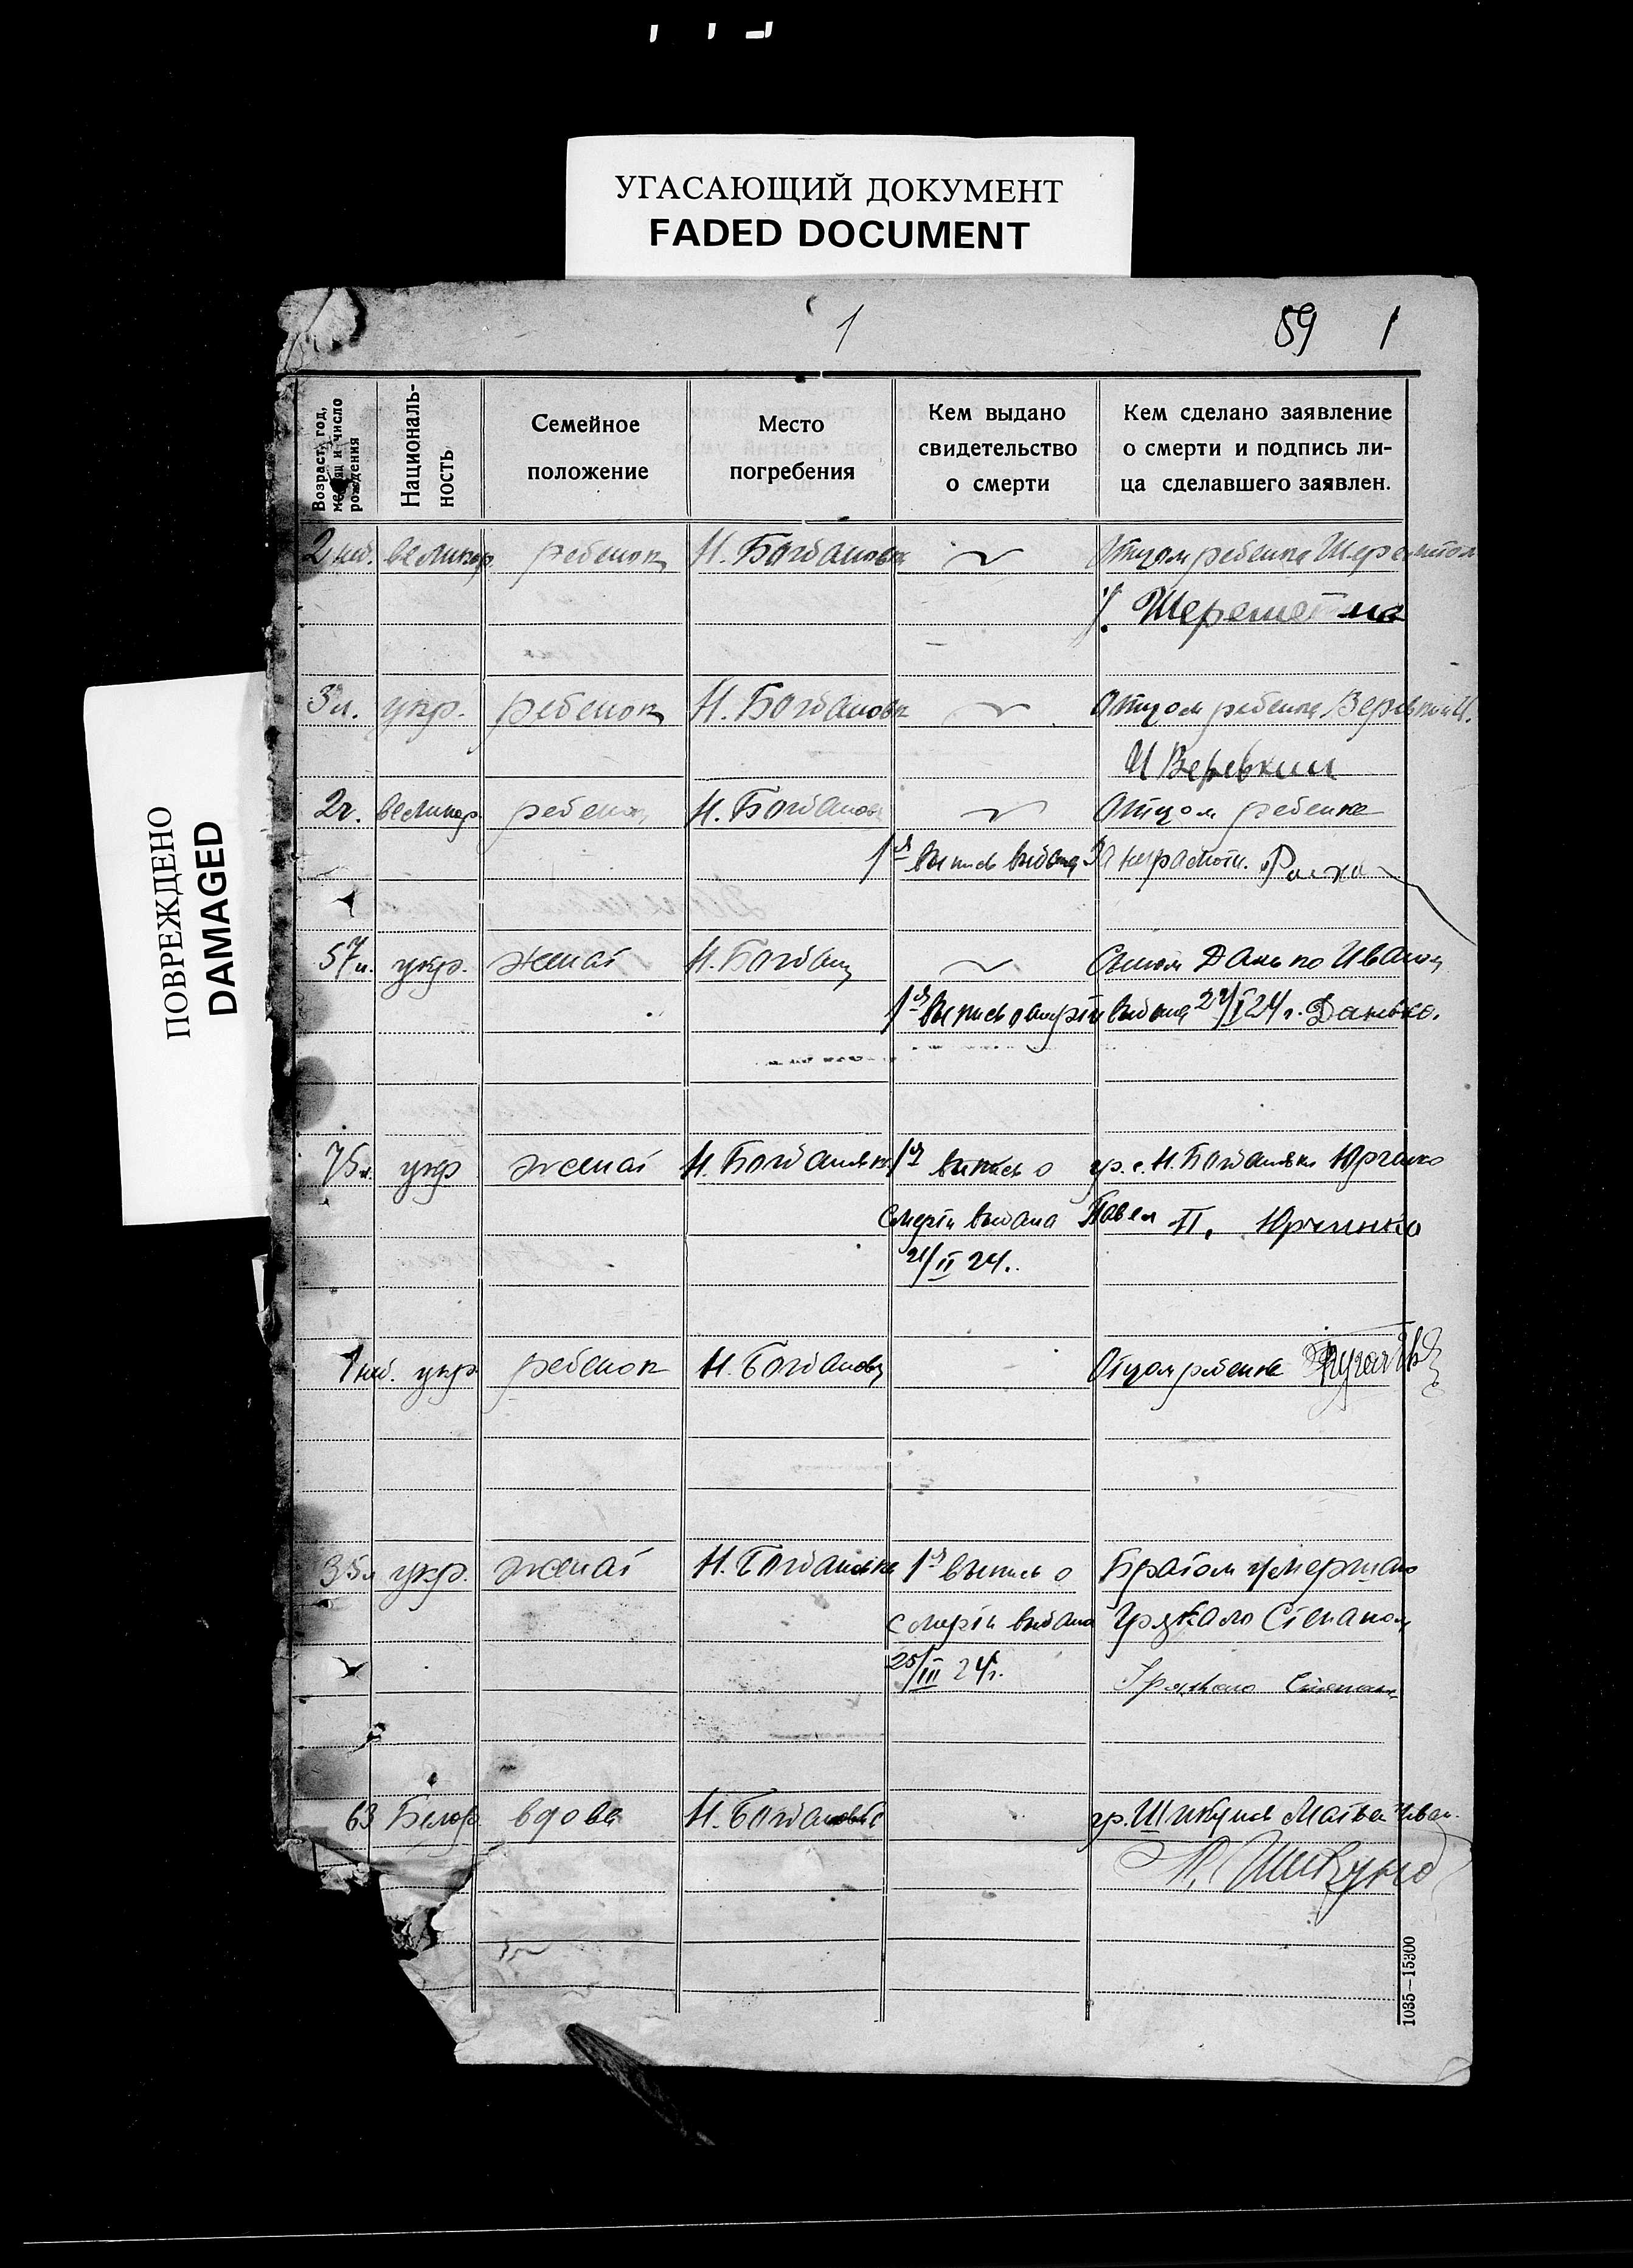 УГАСАЮЩИЙ ДОКУМЕНТ
FADED DOCUMENT
ПОВРЕЖДЕНО
DAMAGED
1 59 1
Возраст, год, месяц и число рождения
Националь-
ность
Семейное
положение
Место
погребения
Кем выдано
свидетельство
о смерти
Кем сделано заявление
о смерти и подпись ли-
ца сделавшего заявлен.
2 нед. великор. ребенок Н. Богдановка Отцом ребенка
3 л. укр. ребенок Н. Богдановк Отцом ребенка Веревкин И.
И Веревкин
2 г. великор. ребенок Н. Богданов Отцом ребенка
1я выпись выдана За неграмотн.
57 л. укр. женат Н. Богдан Сыном Данько Иваном
1я выпись о смерти выдана 22/I 24 г. Данько.
75 л. укр женат Н. Богдановк 1я выпись о гр. с. Н. Богдановки Юрченко
смерти выдана Павел П. Юрченко
21/II 24.
1 нед. укр ребенок Н. Богдановк Отцом ребенка
35 л укр. женат Н. Богдановка 1я выпись о Братом умершаго
смерти выдана Грякало Степаном
25/III 24 г. Грякало Степан
63 Белор. вдова Н. Богдановка гр. Шикунов Матвей Иван.
1035—15300